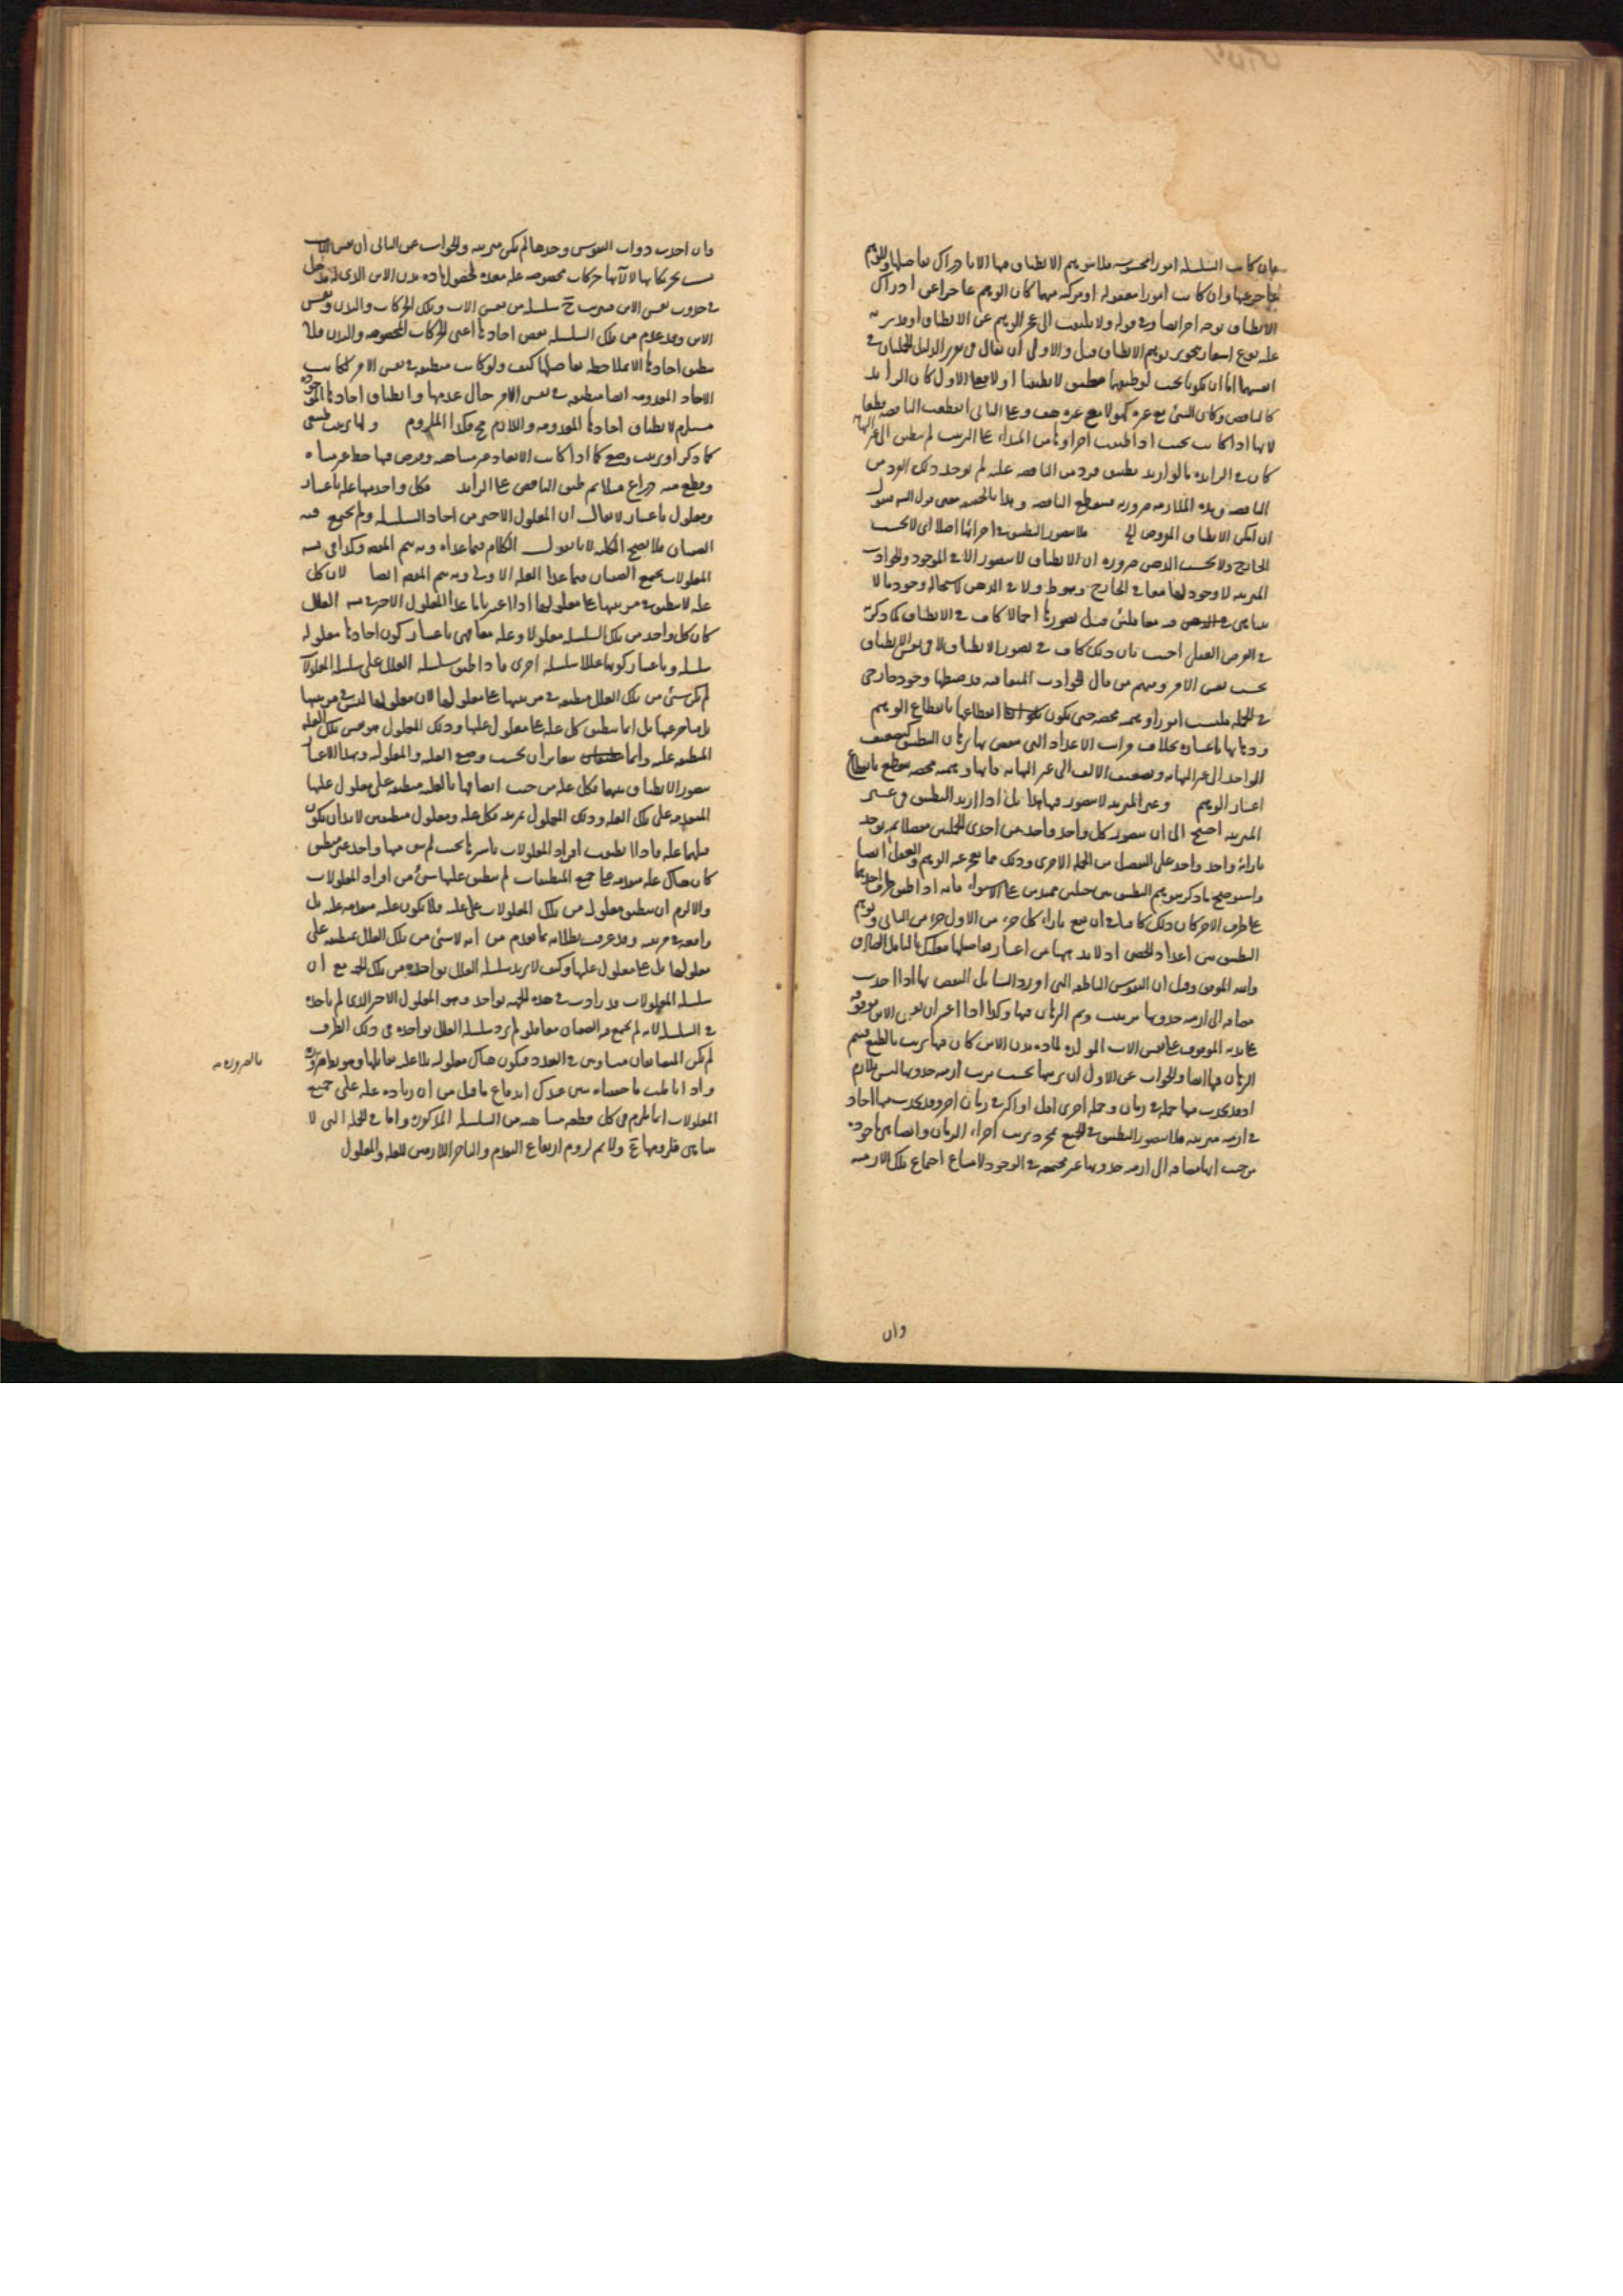 فان كانت السلسلة امورا محسوسة فلا يتوهم الانطباق فيها الا بادراك تفاصيلها والوهم
عاجز عنها وان كانت امورا معقولة او مركبة منهما كان الوهم عاجزا عن ادراك
الانطباق بوجه اخر ايضا وفي قوله ولا يلتفت الى عجز الوهم عن الانطباق
عليه نوع اشعار بتجويز توهم الانطباق قيل والاولى ان يقال في تقرير الدليل الجملتان في
انفسهما اما ان يكونا بحيث لو طبقهما مطبق لانطبقتا او لا فعلى الاول كان الزائد
كالناقص وكان الشئ مع غيره كهو لا مع غيره هف وعلى الثاني انقطعت الناقصة قطعا
لانها اذا كانت بحيث اذا طبقت اجزاؤها من المبداء على الترتيب لم ينطبق الى غير النهاية
كان في الزائدة بالواحد ينطبق فرد من الناقصة عليه لم يوجد ذلك الفرد من
الناقصة وهذه الملازمة ضرورية فينقطع الناقصة وهذا بالحقيقة معنى قول
ان امكن الانطباق المفروض الخ فلا يتصور التطبيق في اجزائها اصلا اي لا بحسب
الخارج ولا بحسب الذهن ضرورة ان الانطباق لا يتصور الا في الموجود والحوادث
المترتبة لا وجود لها معا في الخارج وهو ظ ولا في الذهن لاستحالة وجود ما لا
يتناهى فيه معا فلئن قيل تصورها اجمالا كاف في الانطباق كما ذكرتم
في الفرض العقلي اجيب بان ذلك كاف في تصور الانطباق لا في نفس الانطباق
بحسب نفس الامر ومنهم من قال الحوادث المتعاقبة قد ضبطها وجود خارجي
في الجملة فليست امورا وهمية محضة حتى يكون انقطاعها بانقطاع الوهم
وذهابها باعتباره بخلاف مراتب الاعداد التي ينقض بها برهان التطبيق كتضعيف
الواحد الى غير النهاية وتضعيف الالف الى غير النهاية فانها وهمية محضة ينقطع بانقطاع
اعتبار الوهم وغير المترتبة لا يتصور فيها هذا بل اذا اريد التطبيق في غير
المترتبة احتيج الى ان يتصور كل واحد واحد من احدى الجملتين مفصلا ثم يوجد
بازائه واحد واحد على التفصيل من الجملة الاخرى وذلك مما يعجز عنه الوهم والعقل ايضا
واستوضح ما ذكر بتوهم التطبيق بين حبلين ممتدين على الاستواء فانه اذا طبق طرف احدهما
على طرف الاخر كان ذلك كافيا في ان يقع بازاء كل جزء من الاول جزء من الثاني وتوهم
التطبيق بين اعداد الحصى اذ لا بد فيها من اعتبار تفاصيلها فعليك بالتامل الصادق
والله الموفق وقيل ان النفوس الناطقة التي اورد السائل النقض بها اذا اخذت
مضافة الى ازمنة حدوثها ترتبت وتم البرهان فيها وكذا اذا اعتبر ان نفس الابن موقوفة
على بدنه الموقوف على نفس الاب المولدة لمادة بدن الابن كان فيها ترتب بالطبع فيتم
البرهان فيها ايضا والجواب عن الاول ان ترتبها بحسب ترتب ازمنة حدوثها ليس بلازم
اذ قد يحدث منها جملة في زمان وجملة اخرى اقل او اكثر في زمان اخر وقد يحدث منها احاد
في ازمنة مترتبة فلا يتصور التطبيق في الجميع بمجرد ترتب اجزاء الزمان وايضا هي ماخوذة
من حيث انها مضافة الى ازمنة حدوثها غير مجتمعة في الوجود لامتناع اجتماع تلك الازمنة
وان
وان اخذت ذوات النفوس وحدها لم تكن مترتبة والجواب عن الثاني ان نفس الاب
بتحريكاتها لآلاتها حركات مخصوصة علة معدة لحصول مادة بدن الابن الذي له مدخل
في حدوث نفس الابن فترتبت ح سلسلة من نفس الاب وتلك الحركات والبدن ونفس
الابن وقد عدم من تلك السلسلة بعض احادها اعني الحركات المخصوصة والبدن فلا
ينطبق احادها الا بملاحظة تفاصيلها كيف ولو كانت منطبقة في نفس الامر لكانت
الاحاد المعدومة ايضا منطبقة في نفس الامر حال عدمها وانطباق احادها الموجودة
مستلزم لانطباق احادها المعدومة واللازم مح فكذا الملزوم ولها ترتب طبيعي
كما ذكر او ترتب وضع كما اذا كانت الابعاد غير متناهية وفرض فيها خط غير متناه
وقطع منه ذراع مثلا ثم طبق الناقص على الزائد فكل واحد منها علة باعتبار
ومعلول باعتبار لا يقال ان المعلول الاخير من احاد السلسلة ولم يجتمع فيه
الصفتان فلا يصح الكلية لانا نقول الكلام فيما عداه وبه يتم المقصود وكذا في
المعلولات يجتمع الصفتان فيما عدا العلة الاولى وبه يتم المقصود ايضا لان كل
علة لا ينطبق في مرتبتها على معلولها اذا اعتبرنا ما عدا المعلول الاخير العلل
كان كل واحد من تلك السلسلة معلولا وعلة معا فهي باعتبار كون احادها معلولة
سلسلة وباعتبار كونها عللا سلسلة اخرى فاذا طبق سلسلة العلل على سلسلة المعلولات
لم يكن شئ من تلك العلل منطبقة في مرتبتها على معلولها لان معلولها ليس في مرتبتها
بل متاخر عنها بل انما ينطبق كل علة على معلول علتها وذلك المعلول هو نفس تلك العلة
المنطبقة عليه وانما يتغايران بحسب وصفي العلية والمعلولية وبهذا الاعتبار
يتصور الانطباق بينهما فكل علة من حيث اتصافها بالعلية منطبقة على معلول علتها
المتقدمة على تلك العلة وذلك المعلول بمرتبة فكل علة ومعلول منطبقين لا بد ان يكون
قبلهما علة فاذا انطبقت افراد المعلولات باسرها بحيث لم يبق منها واحد غير منطبق
كان هناك علة متقدمة على جميع المنطبقات لم ينطبق عليها شئ من افراد المعلولات
والا لزم ان ينطبق معلول من تلك المعلولات على علة فلا يكون علة متقدمة عليه بل
واقعة في مرتبته وقد عرفت بطلانه بما تقدم من انه لا شئ من تلك العلل بمنطبقة على
معلولها بل على معلول علتها وكيف لا يزيد سلسلة العلل بواحدة من تلك الجهة مع ان
سلسلة المعلولات قد زادت في هذه الجهة بواحد وهو المعلول الاخير الذي لم ناخذه
في السلسلة لانه لم يجتمع فيه الصفتان معا فلو لم يزد سلسلة العلل بواحدة في ذلك الطرف
لم يكن المتضايفان متساويين في العدد فيكون هناك معلولية بلا علية تقابلها وهو بط
بالضرورة
واذ اتاملت ما حققناه تبين عندك اندفاع ما قيل من ان زيادة علة على جميع
المعلولات انما يلزم في كل قطعة متناهية من السلسلة المذكورة واما في الجملة التي لا
يتناهى فلزومها مم ولا يتم لزوم ارتفاع التقدم والتاخر اللازمين للعلية والمعلول